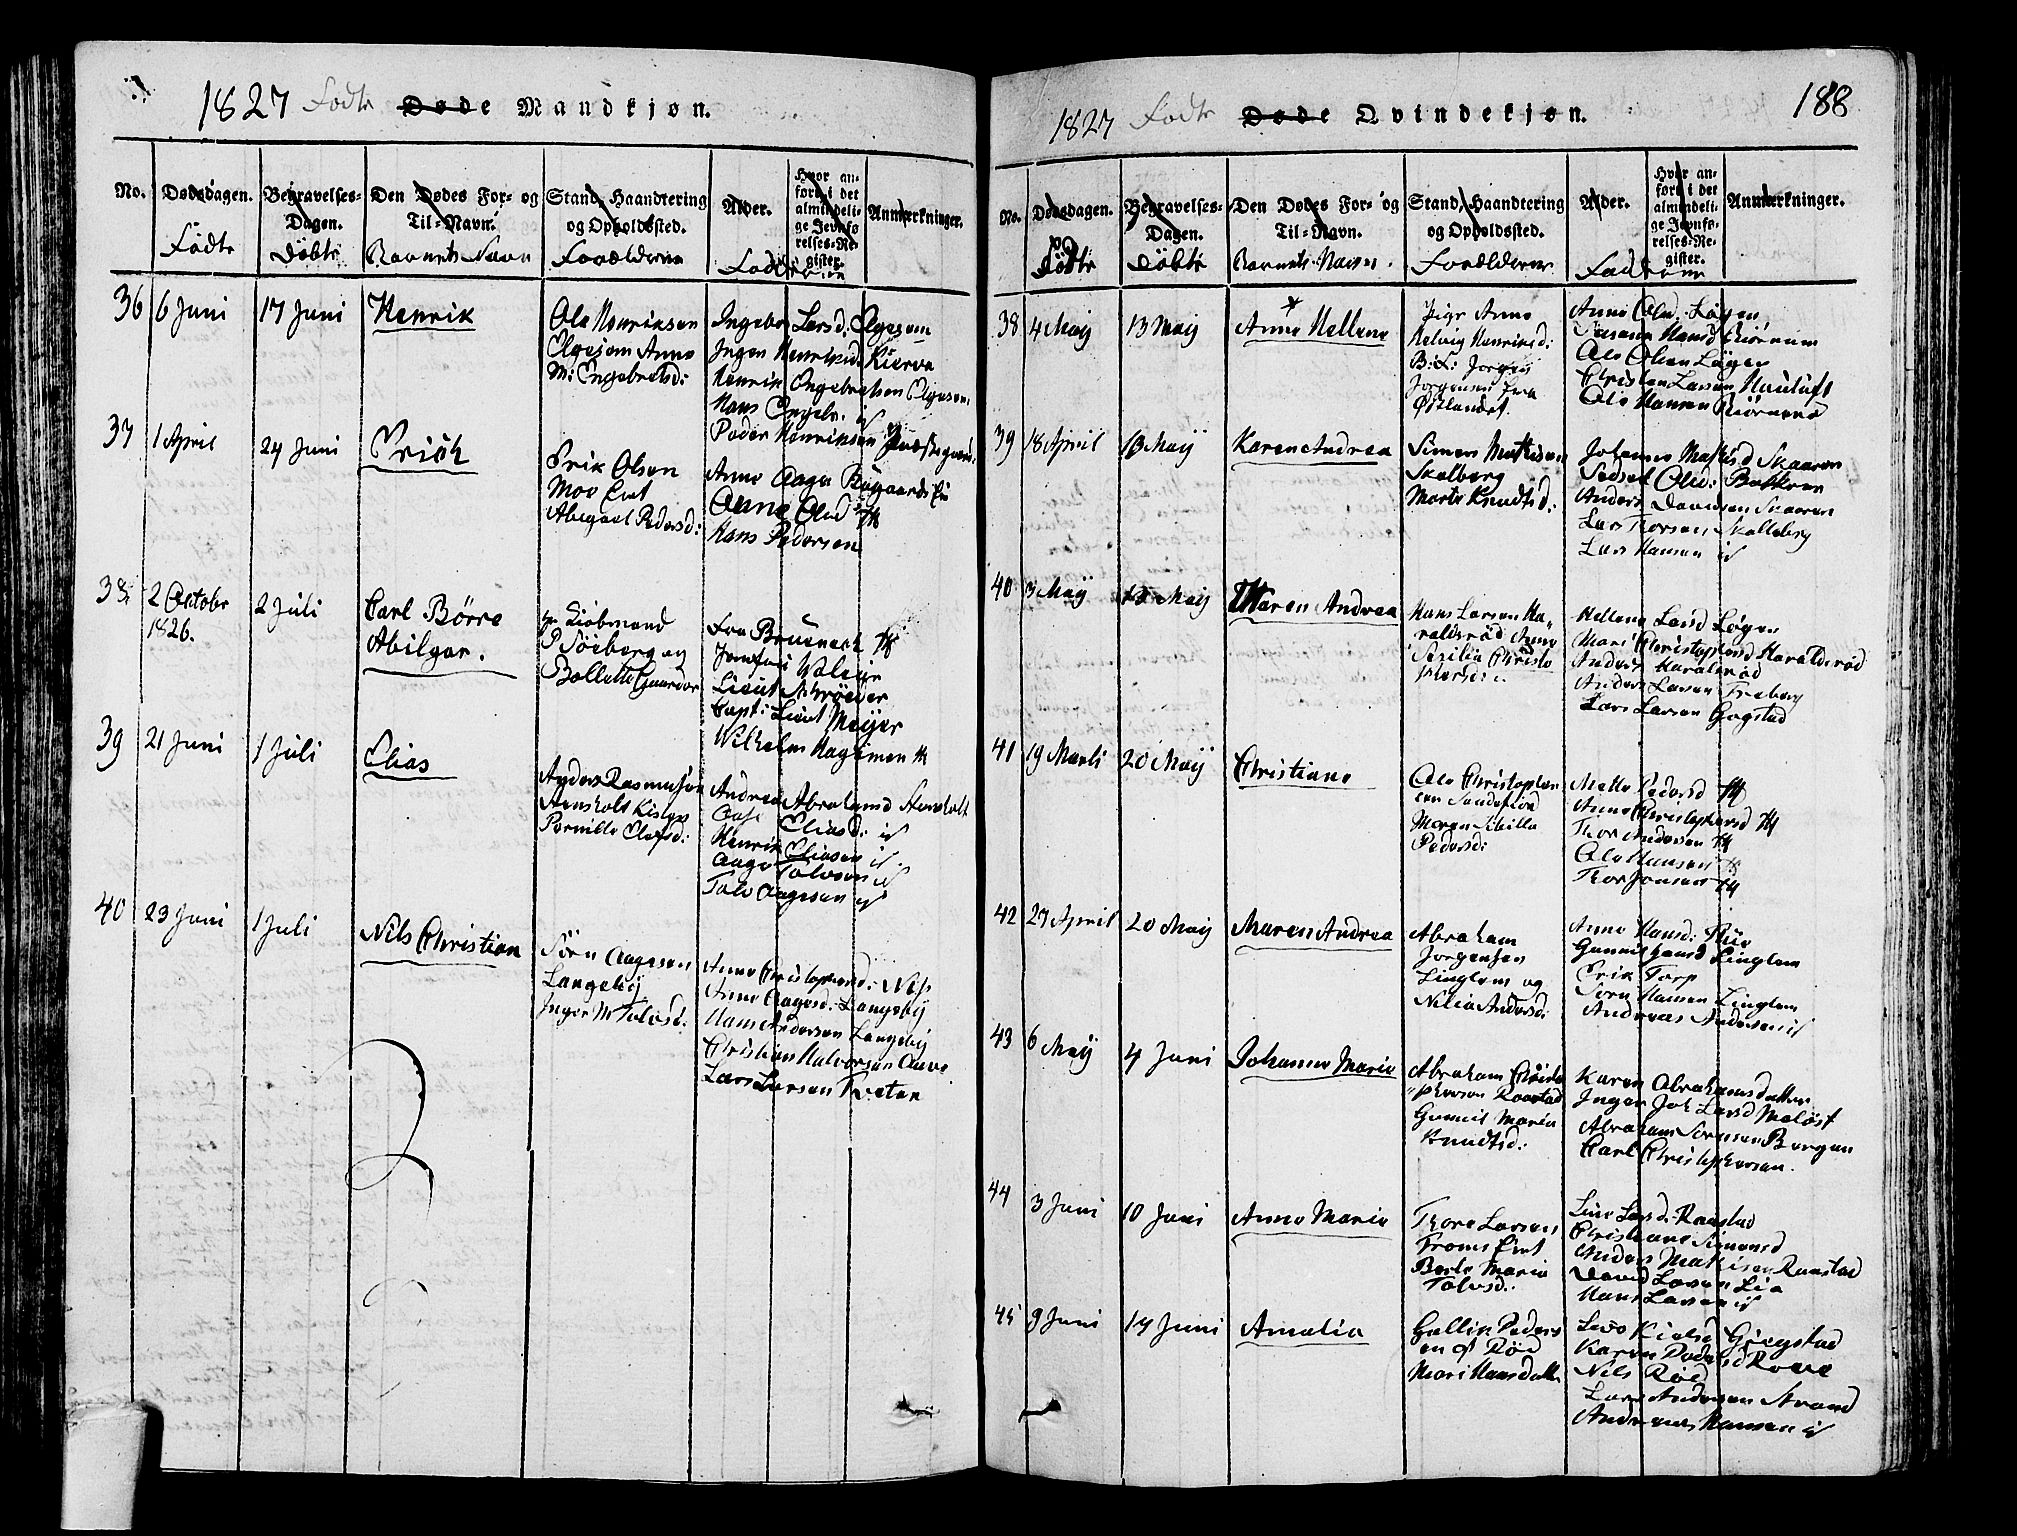 1827 Fødte Døde Mandkjøn.
No.
Dødsdagen.
Fødte
Begravelses-
Dagen.
Døbte
Den Dødes For- og
Til-Navn.
Barnets Navn
Stand, Haandtering
og Opholdssted.
Forældrene
Alder.
Hvor an-
ført i det
almindeli-
ge Jevnfø-
relses-Re-
gister.
Anmærkninger.
Fadderne
36 6 Juni 17 Juni Henrik
Ole Henriksen
Elgesem Anne
M: Engebretsd:
Ingebor Larsd: Elgesem
Inger Henriksd. Kierva
Henrik Engebretsen Elgesem
Hans Engebr. id
Peder Henriksen
37 1 April 24 Juni Erich
Erik Olsen
Moe Eiet
Abigael Pedersd:
Anne Aage
Anne Olsd TH
Hans Pedersen
38 2 October
1826.
2 Juli
Carl Børre
Abilgar.
P Søeberg og
Bollette Gaarder
Fru Brueneck TH
Jomfru
Lieut Schrøder
Capt: Lieut Meyer
Wilhelm TH
39 21 Juni 1 Juli Elias
Anders Rasmusen
Pernille Olafsd:
Andrea Abrahamsd
Eliasd: id
Henrik Eliasen id
Aage Talvsen id
Talv Aagesen id
40 23 Juni 1 Juli Nils Christian
Sørn Aagesen
Langebÿ
Inger M Talvsd:
Anne Christophersd:
Anne Aagesd: Langebÿ
Hans Andersen Langebÿ
Christian Halvorsen
Lars Larsen Treten
1827 Fødte Døde Qvindekjøn.
188
No.
Dødsdagen.
Fødte
Begravelses-
Dagen.
Døbte
Den Dødes For- og
Til-Navn.
Barnets Navn.
Stand, Haandtering
og Opholdssted.
Forældrene
Alder.
Hvor an-
ført i det
almindeli-
ge Jevnfø-
relses-Re-
gister.
Anmærkninger.
Fadderne
38 4 Maÿ 13 Maÿ Anne Hellene
Pige Anne
Helvig Henriksd:
B: F: Jørgen
Jørgensen fra
Østlandet.
Anne Olsd. Løgen
Susanne Hansd Biørnum
Ole Olsen Løgen
Christen Larsen Hauluft
Ole Hansen Biørnerød
39 18 April 13 Maÿ Karen Andrea
Simen Mathisen
Skalberg
Marte Knudtsd:
Johanne Mathisd Skaaren
Sedsel Olsd: Bakken
Anders Davidsen Skaaren
Lars Thorsen Skalleberg
Lars Hansen id
40 3 Maÿ 13 Maÿ Maren Andrea
Hans Larsen Ha-
raldsrød Anne
Sesilia Christo
phersd:
Hellene Larsd Løgen
Mari Christophersd Haraldsrød
Anders Haraldsrød
Anders Larsen Freberg
Lars Larsen Gogstad
41 19 Marti 20 Maÿ Christiane
Ole Christophersen
Maren Sibilla
Pedersd:
Mette Pedersd TH
Anne Christophersd TH
Thor Andersen TH
Ole Hansen TH
Thor Jonsen TH
42 27 April 20 Maÿ Maren Andrea
Abraham
Jørgensen
Linglem og
Nilia Andersd:
Anne Hansd:
Gunnil Linglem
Erik Torp
Sørn Hansen Linglem
Andreas Andersen id
43 6 Maÿ 4 Juni Johanne Marie
Abraham Christo
phersen Raastad
Gunnil Maria
Knudtsd:
Karen Abrahamsdatter
Inger Joh Larsd Meløst
Abraham Sørensen Bergan
Carl Christophersen.
44 3 Juni 10 Juni Anne Marie
Thore Larsen
Fröms Eiet
Berte Maria
Talvsd:
Line Larsd: Raastad
Christiane Simensd
Anders Mathisen Raastad
David Larsen Lia
Hans Larsen id
45 9 Juni 17 Juni Amalia
Gullik Peders
en af Rød
Mari Hansdatter
Karen Pedersd
Gjegstad
Nils Rød
Lars Andersen Strand
Andreas Hansen id